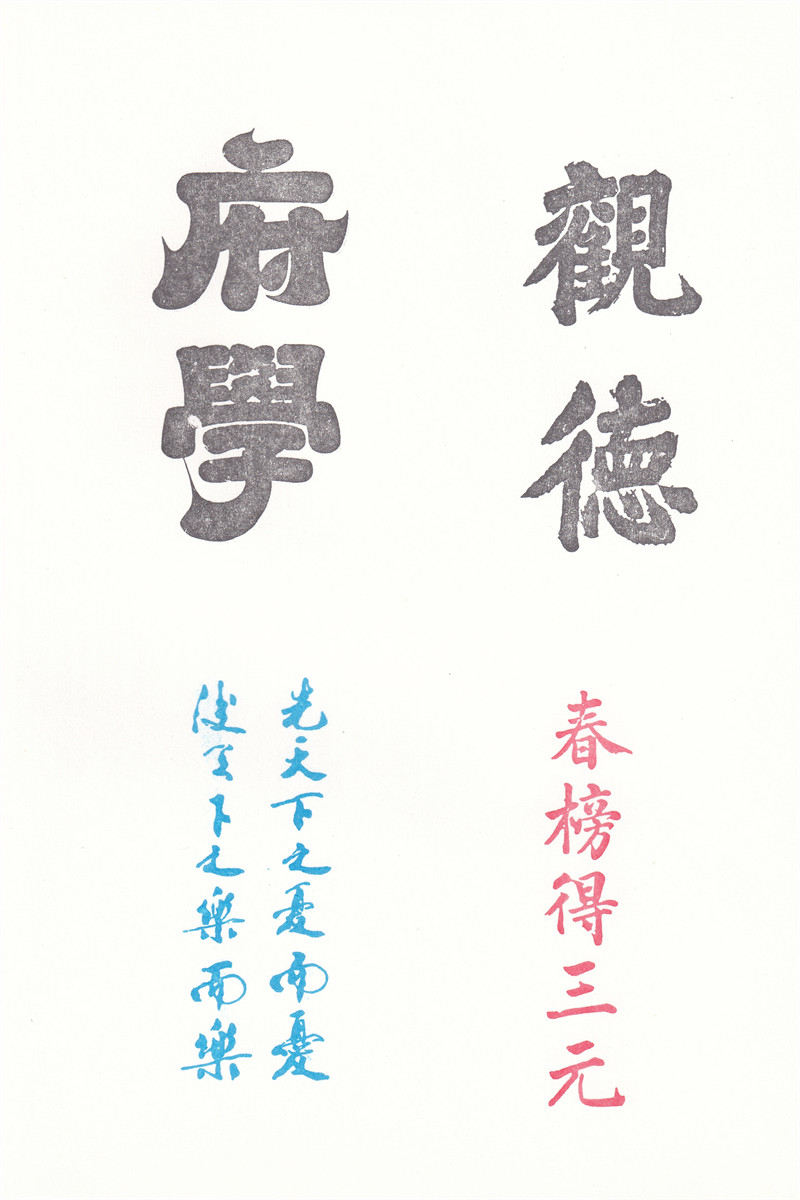 觀德
府學
春榜得三元
先天下之憂而憂
後天下之樂而樂